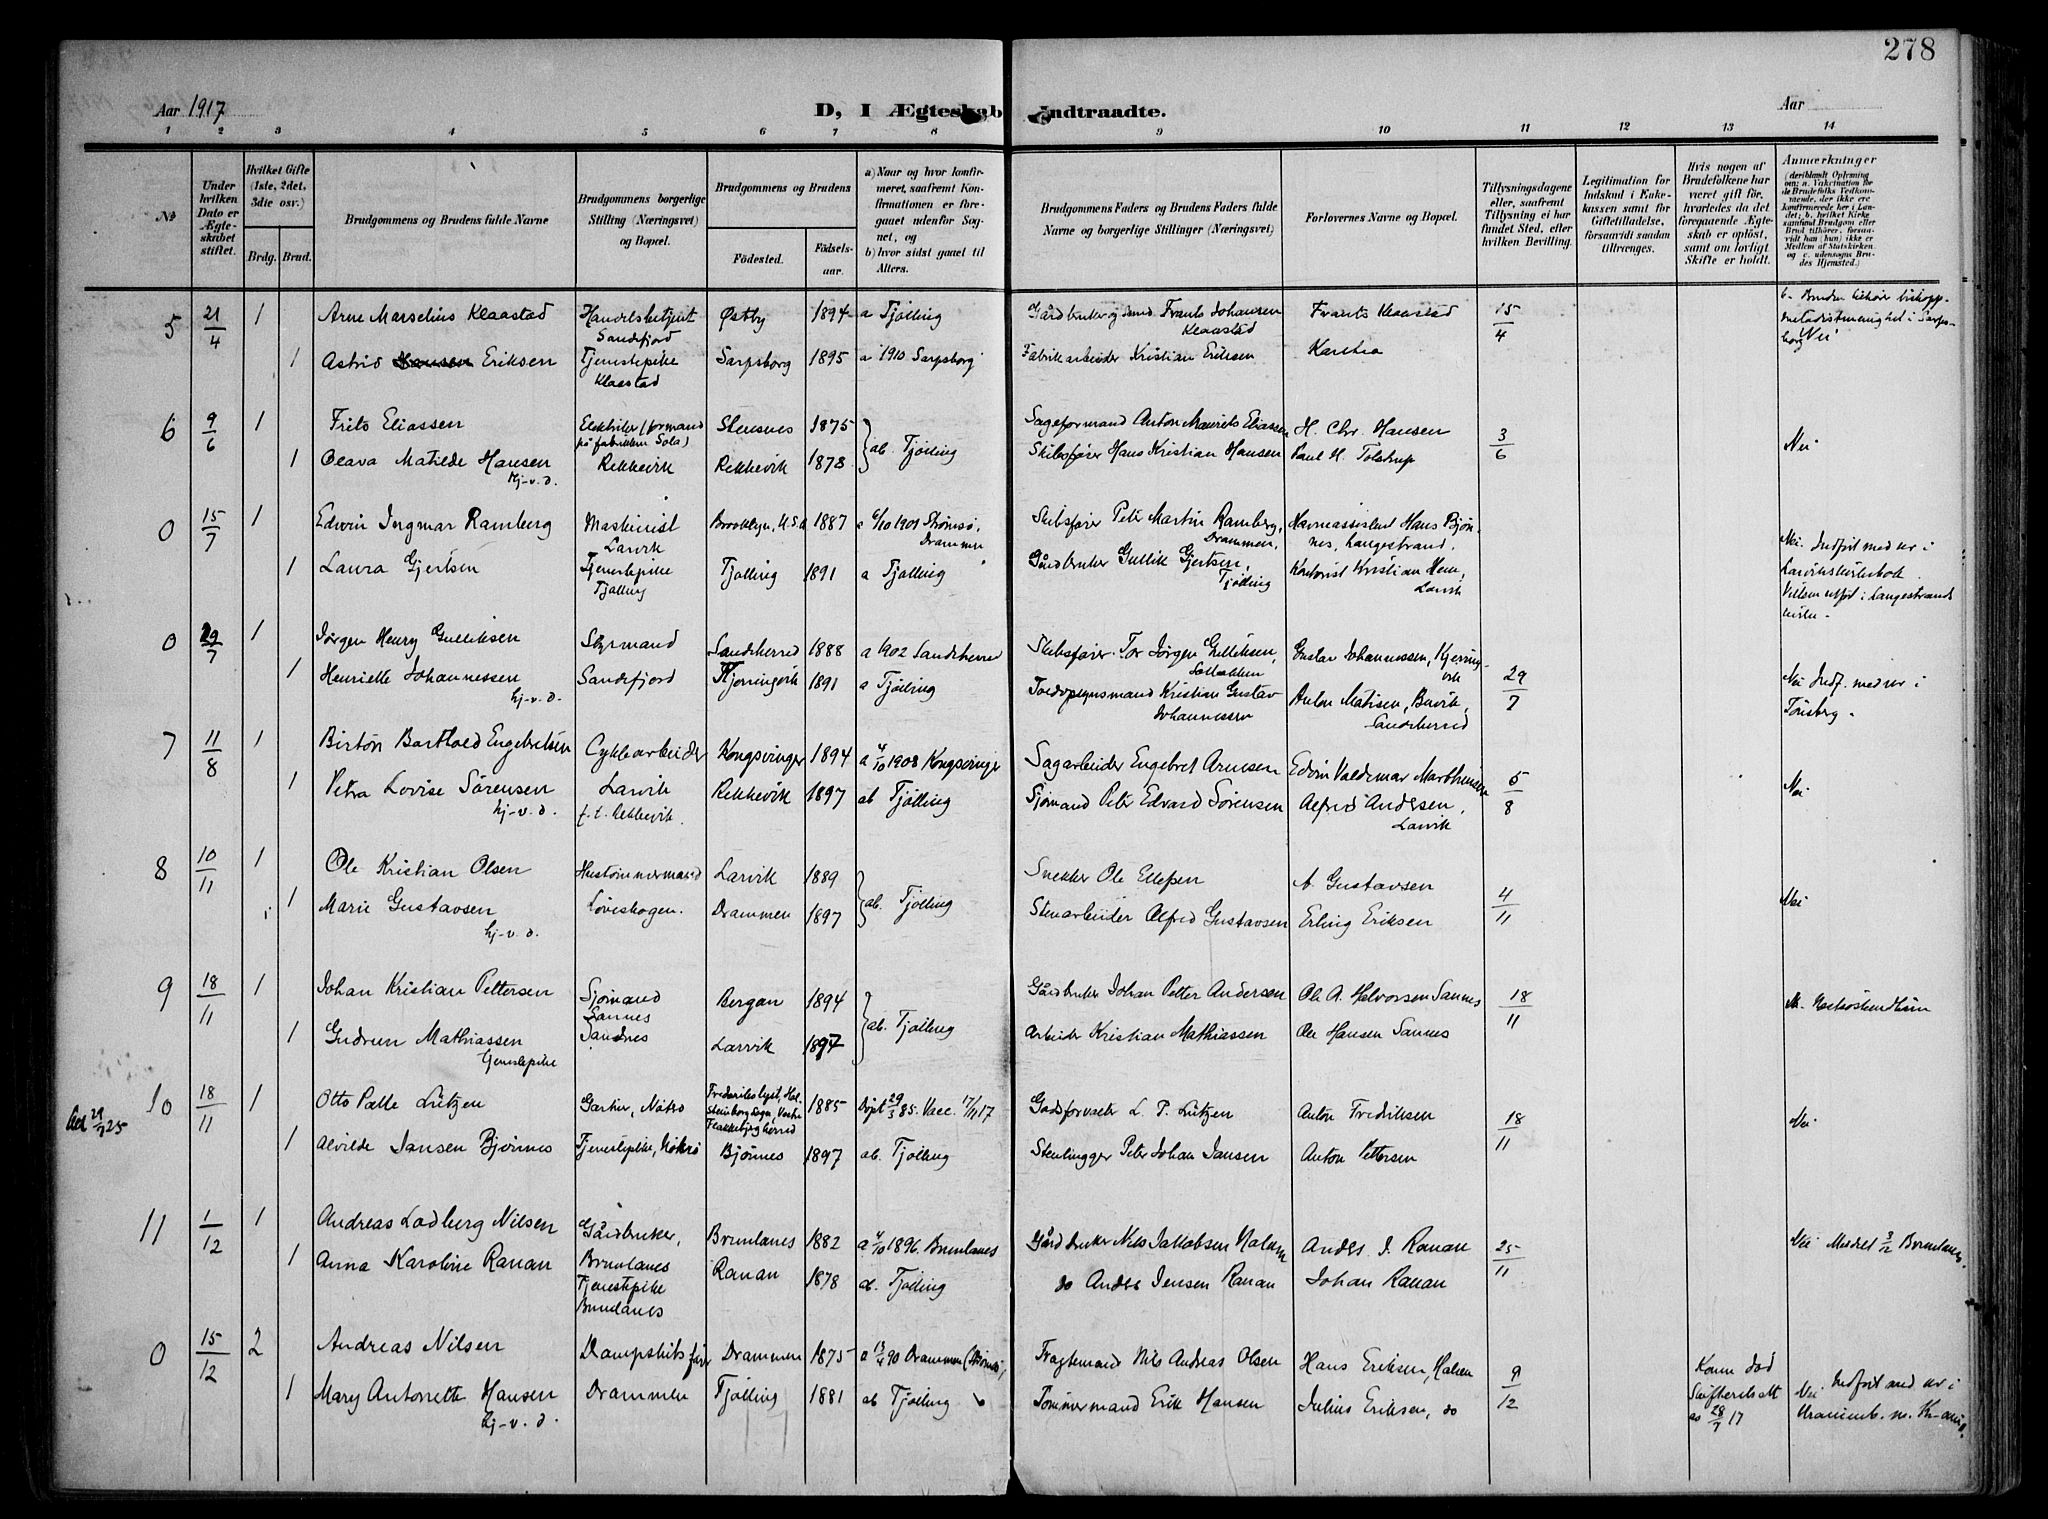 278
Aar 1917
D, I Ægteskab indtraadte.
Aar
1 2 3 4 5 6 7 8 9 10 11 12 13 14
№
Under hvilken Dato er Ægteskabet stiftet.
Hvilket Gifte (1ste, 2det, 3die osv.)
Brdg. Brud.
Brudgommens og Brudens fulde Navne
Brudgommens borgerlige Stilling (Næringsvei) og Bopæl.
Brudgommens og Brudens
Födested. Födselsaar.
a) Naar og hvor konfirmeret, saafremt Konfirmationen er foregaaet udenfor Sognet, og
b) hvor sidst gaaet til Alters.
Brudgommens Faders og Brudens Faders fulde Navne og borgerlige Stillinger (Næringsvei)
Forlovernes Navne og Bopæl.
Tillysningsdagene eller, saafremt Tillysning ei har fundet Sted, efter hvilken Bevilling.
Legitimation for Indskud i Enkekassen samt for Giftetilladelse, forsaavidt saadan tiltrænges.
Hvis nogen af Brudefolkene har været gift för, hvorledes da det foregaaende Ægteskab er oplöst, samt om lovligt Skifte er holdt.
Anmærkninger (deriblandt Oplysning om: a. Vakcination for de Brudefolks Vedkommende, der ikke ere konfirmerede her i Landet; b. hvilket Kirkesamfund Brudgom eller Brud tilhörer, forsaavidt han (hun) ikke er Medlem af Statskirken og c. udensogns Brudes Hjemsted.)
5 21/4 1 Arne Marselius Klaastad Handelsbetjent Sandefjord Østby 1894 a Tjølling Gårdbruker og Frants Johansen Klaastad Frants Klaastad 15/4 b. Bruden tilhører biskopp-metodistmenighet i Sarpsborg Nei
1 Astrid Eriksen Tjenestepike Klaastad Sarpsborg 1895 a 1910 Sarpsborg Fabrikarbeider Kristian Eriksen
6 9/6 1 Frits Eliassen på fabrikken Sola) Stensnes 1875 ab. Tjølling Sageformand Anton Maurits Eliassen H. Chr. Hansen 3/6 Nei
1 Olava Matilde Hansen hj-v.d. Rekkevik Rekkevik 1878 Skibsfører Hans Kristian Hansen Paul H. Tolstrup
0 15/7 1 Edvin Ingmar Ramberg Maskinist Larvik Brooklyn, U.S.A 1887 a 6/10 1901 Strømsø, Drammen Skibsfører Peter Martin Ramberg, Drammen, Havneassistent Hans Bjønnes, Langestrand. Nei. Indført med nr i
1 Laura Gjertsen Tjenestepike Tjølling Tjølling 1891 a Tjølling Gårdbruker Gullik Gjertsen, Tjølling Kontorist Kristian Hem, Larvik
0 29/7 1 Jørgen Henry Gulliksen Styrmand Sandeherred 1888 a 1902 Sandeherred Skibsfører Tor Jørgen Gulliksen, Gustav Johannessen, Kjerringvik 29/7 Nei Indf. med nr i Tønsberg.
1 Henriette Johannessen hj-v.d. Sandefjord Kjerringvik 1891 a Tjølling Toldopsynsmand Kristian Gustav Johannessen Anton Matisen, Buvik, Sandeherred
7 11/8 1 Birton Barthold Engebretsen Cyklearbeider Kongsvinger 1894 a 4/10 1908 Kongsvinger Sagarbeider Engebret Arnesen Edvin Valdemar Marthinsen 5/8 Nei
1 Petra Lovise Sørensen hj-v.d. Larvik f.t. Rekkevik. Rekkevik 1897 ab Tjølling Sjømand Peter Edvard Sørensen Alfred Andersen, Larvik
8 10/11 1 Ole Kristian Olsen Hustømmermand Larvik 1889 ab. Tjølling Snekker Ole Ellefsen A. Gustavsen 4/11 Nei
1 Marie Gustavsen hj-v.d. Løveskogen. Drammen 1897 Stenarbeider Alfred Gustavsen Erling Eriksen
9 18/11 1 Johan Kristian Pettersen Sjømand Sannes Bergan 1894 ab. Tjølling Gårdbruker Johan Petter Andersen Ole A. Halvorsen Sannes 18/11
1 Gudrun Mathiassen Tjenestepike Sandnes Larvik 1897 Arbeider Kristian Mathiassen Ole Hansen Sannes
10 18/11 1 Otto Palle Lützen Gartner, Nøkrø 1885 Døpt 29/3 85. Vacc. 17/11 17 Godsforvalter L. P. Lützen Anton Fredriksen 18/11 Nei
29/7 25
1 Alvilde Jansen Bjønnes Tjenestepike, Nøkrø Bjønnes 1897 ab. Tjølling Stenhugger Peter Johan Jansen Anton Pettersen
11 1/12 1 Andreas Ladberg Nilsen Gårdbruker, Brunlanes Brunlanes 1882 a 4/10 1896 Brunlanes Gårdbruker Nils Jakobsen Anders J. Ranan 25/11 Nei Meddelt 3/12 Brunlanes.
1 Anna Karoline Ranan Tjenestepike Brunlanes Ranan 1878 ab. Tjølling do Anders Jensen Ranan Johan Ranan
0 15/12 2 Andreas Nilsen Dampskibsfører Drammen 1875 a 13/4 90 Drammen (Strømsø) Fragtemand Nils Andreas Olsen Hans Eriksen, Halsen 9/12 Kone død Skifteattest 28/7 17 Nei. Indført med nr i
1 Mary Antonette Hansen hj-v.d. Drammen Tjølling 1881 ab Tjølling Tømmermand Erik Hansen Julius Eriksen, do